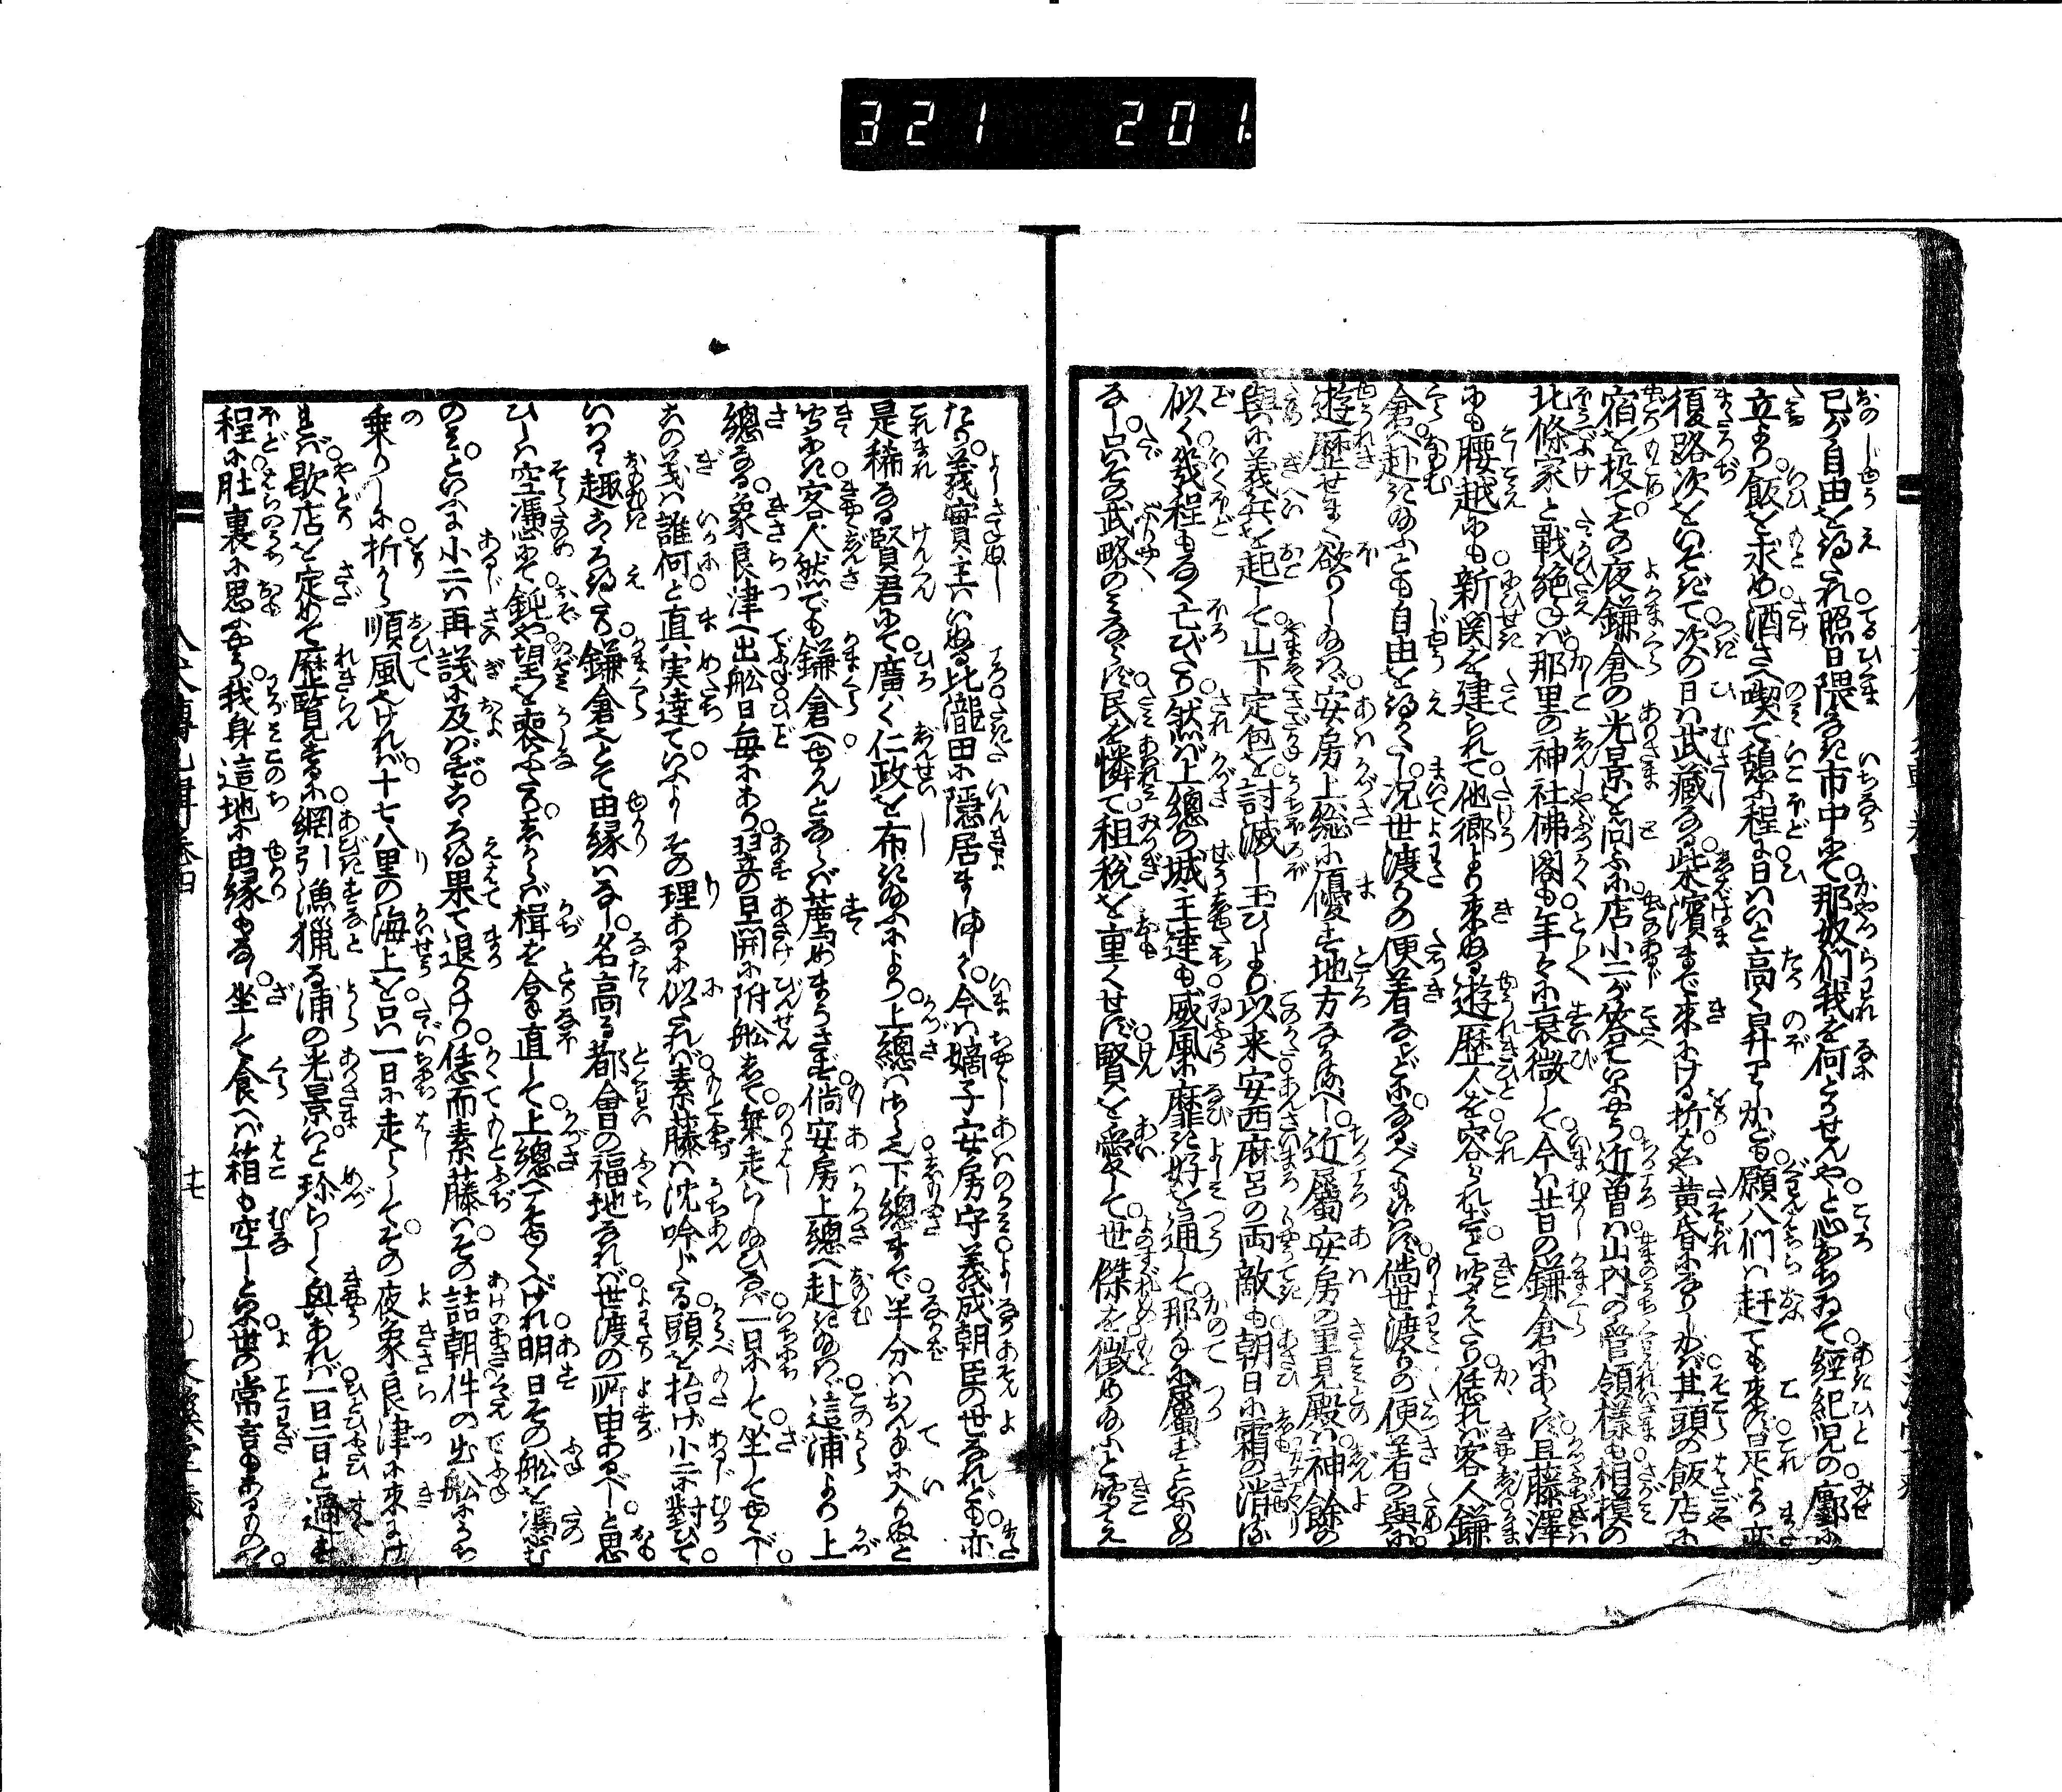 321 201
己が自由を得ざれ照日隈なき市中にて那奴們我を何とかせんやと心おちゐて經紀児の鄽に
立より飯を求め酒さへ喫て憩ふ程に日はいと高く昇りしかども願八們は赶ても来ず是より亦
復路次をいそぎて次の日は武藏なる柴濱まで来にける折はや黄昏になりしかば其頭の飯店に
宿を投てその夜鎌倉の光景を問ふに店小二が答ていふやう近曽は山内の管領樣も相模の
北條家と戰絶ねば那里の神社佛閣も年々に衰微して今は昔の鎌倉にあらず且藤澤
にも腰越にも新関を建られて他郷より来ぬる遊歴人を容られずと聞えたり恁れば客人鎌
倉へ赴き給ふとも自由を得がたし况世渡りの便着などはなるべくもあらず倘世渡りの便着の與に
遊歴せまく欲りし給はゞ安房上総に優す地方なかるべし近屬安房の里見殿は神餘の
與に義兵を起して山下定包を討滅し玉ひしより以来安西麻呂の両敵も朝日に霜の消る
似く幾程もなく亡びたり然ば上總の城主達も威風に靡き好を通して那手に屬ずといふもの
なし只その武略のみならず民を憐て租税を重くせず賢を愛して世の傑を徴め給ふと聞え
たり義實主はいぬる比瀧田に隱居ましまく今は嫡子安房守義成朝臣の世なれども亦
是稀なる賢君にて廣く仁政を布き給ふにより上總はさら也下總まで半分はおん手に入りぬと
聞にき客人然でも鎌倉へゆかんとならば薦めまうさず倘安房上總へ赴き給はゞ這浦より上
總なる象良津へ出舩日毎にあり翌の旦開に附舩して乗走らし給ひなば一日にして坐してゆくべし
この義は誰何と直実達ていふよしその理あるに似たれば素藤は沈吟じたる頭を抬げ小二に對ひて
いはるゝ趣こゝろ得たり鎌倉へとて由縁はなし名高る都會の福地なれば世渡の所由あるべしと思
ひしは空憑にて鈍や望を喪ふたりしからば楫を拿直して上總へこそゆくべけれ明日その舩を憑む
のみといふに小二は再議に及ばずこゝろ得果て退りけり恁而素藤はその詰朝件の出舩にうち
乗りしに折から順風なりければ十七八里の海上を只一日に走らしてその夜象良津に来にけ
れば歇店を定めて歴覧するに網引漁獵る浦の光景いと珎らしく興あれば一日二日と過す
程に肚裏に思ふやう我身這地に由縁もなし坐して食へば箱も空しといふ世の常言もあるものを
十七